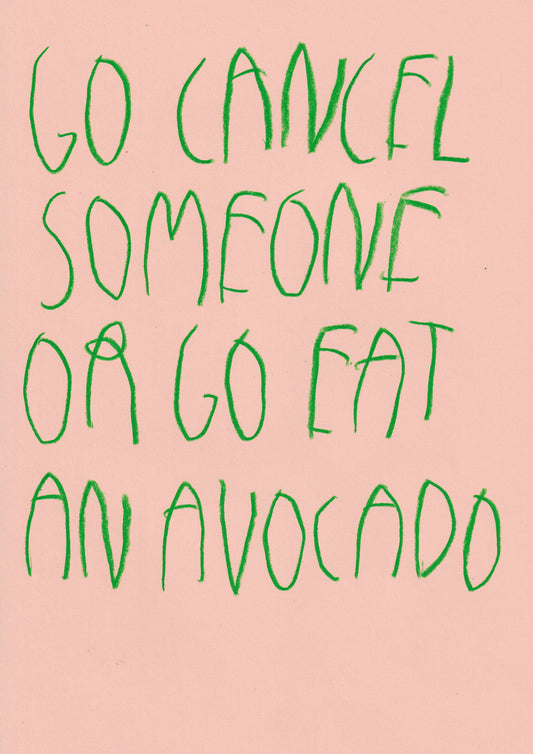 GO CANCEL
SOMEONE
OR GO EAT
AN AVOCADO